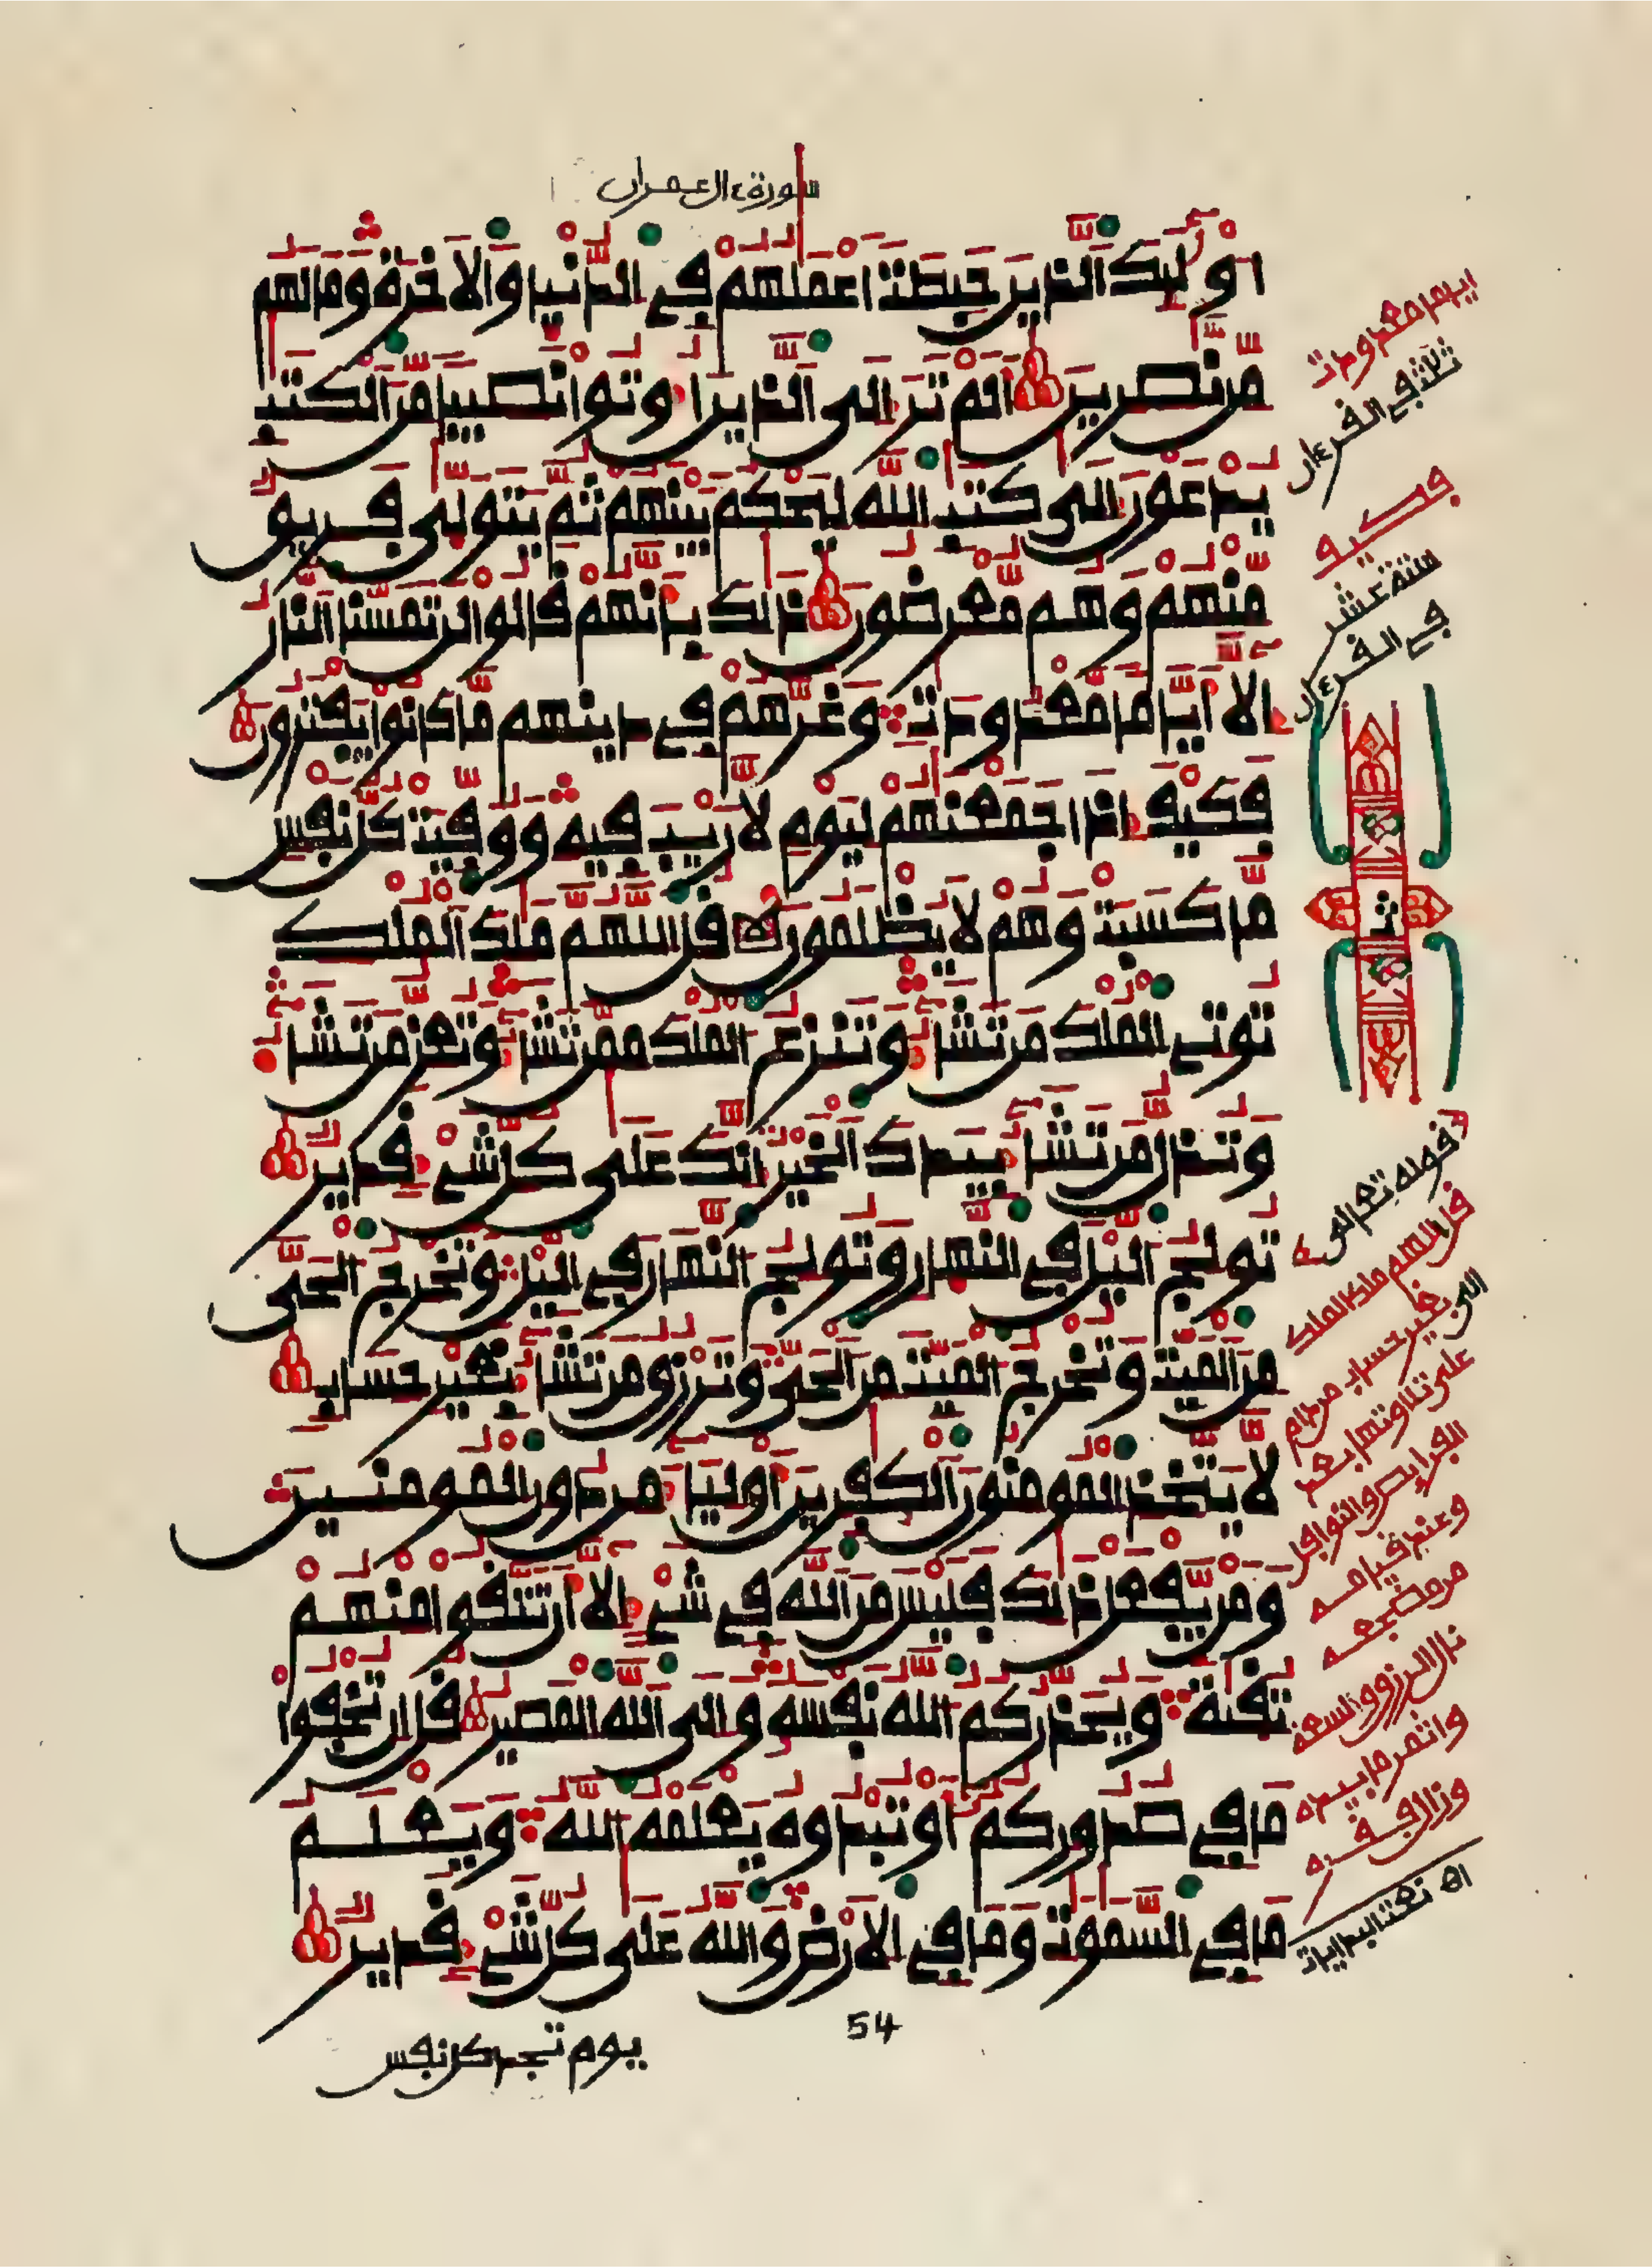 سورة ءال عمران
اولٰئك الذين حبطت اعملهم في الدنيا والاخرة وما لهم
من نصرين الم تر الى الذين اوتوا نصيبا من الكتب
يدعون الى كتب الله ليحكم بينهم ثم يتولى فريق
منهم وهم معرضون ذلك بانهم قالوا لن تمسنا النار
الا اياما معدودت وغرهم في دينهم ما كانوا يفترون
فكيف اذا جمعنهم ليوم لا ريب فيه ووفيت كل نفس
ما كسبت وهم لا يظلمون قل اللهم ملك الملك
توتي الملك من تشاء وتنزع الملك ممن تشاء وتعز من تشاء
وتذل من تشاء بيدك الخير انك على كل شيء قدير
تولج اليل في النهار وتولج النهار في اليل وتخرج الحي
من الميت وتخرج الميت من الحي وترزق من تشاء بغير حساب
لا يتخذ المومنون الكفرين اولياء من دون المومنين
ومن يفعل ذلك فليس من الله في شيء الا ان تتقوا منهم
تقية ويحذركم الله نفسه والى الله المصير قل ان تخفوا
ما في صدوركم او تبدوه يعلمه الله ويعلم
ما في السموت وما في الارض والله على كل شيء قدير
54
يوم تجد كل نفس
اياما معدودت
ثلثة في القرءان
فكيف
ستة عشر
في القرءان
ثمن
قوله تعالى
قل اللهم ملك الملك
الى بغير حساب من دام
على تلاوتها بعد
الفرايض والنوافل
وعند قيامه
من مضجعه
نال الرزق والسعة
وزال فقره